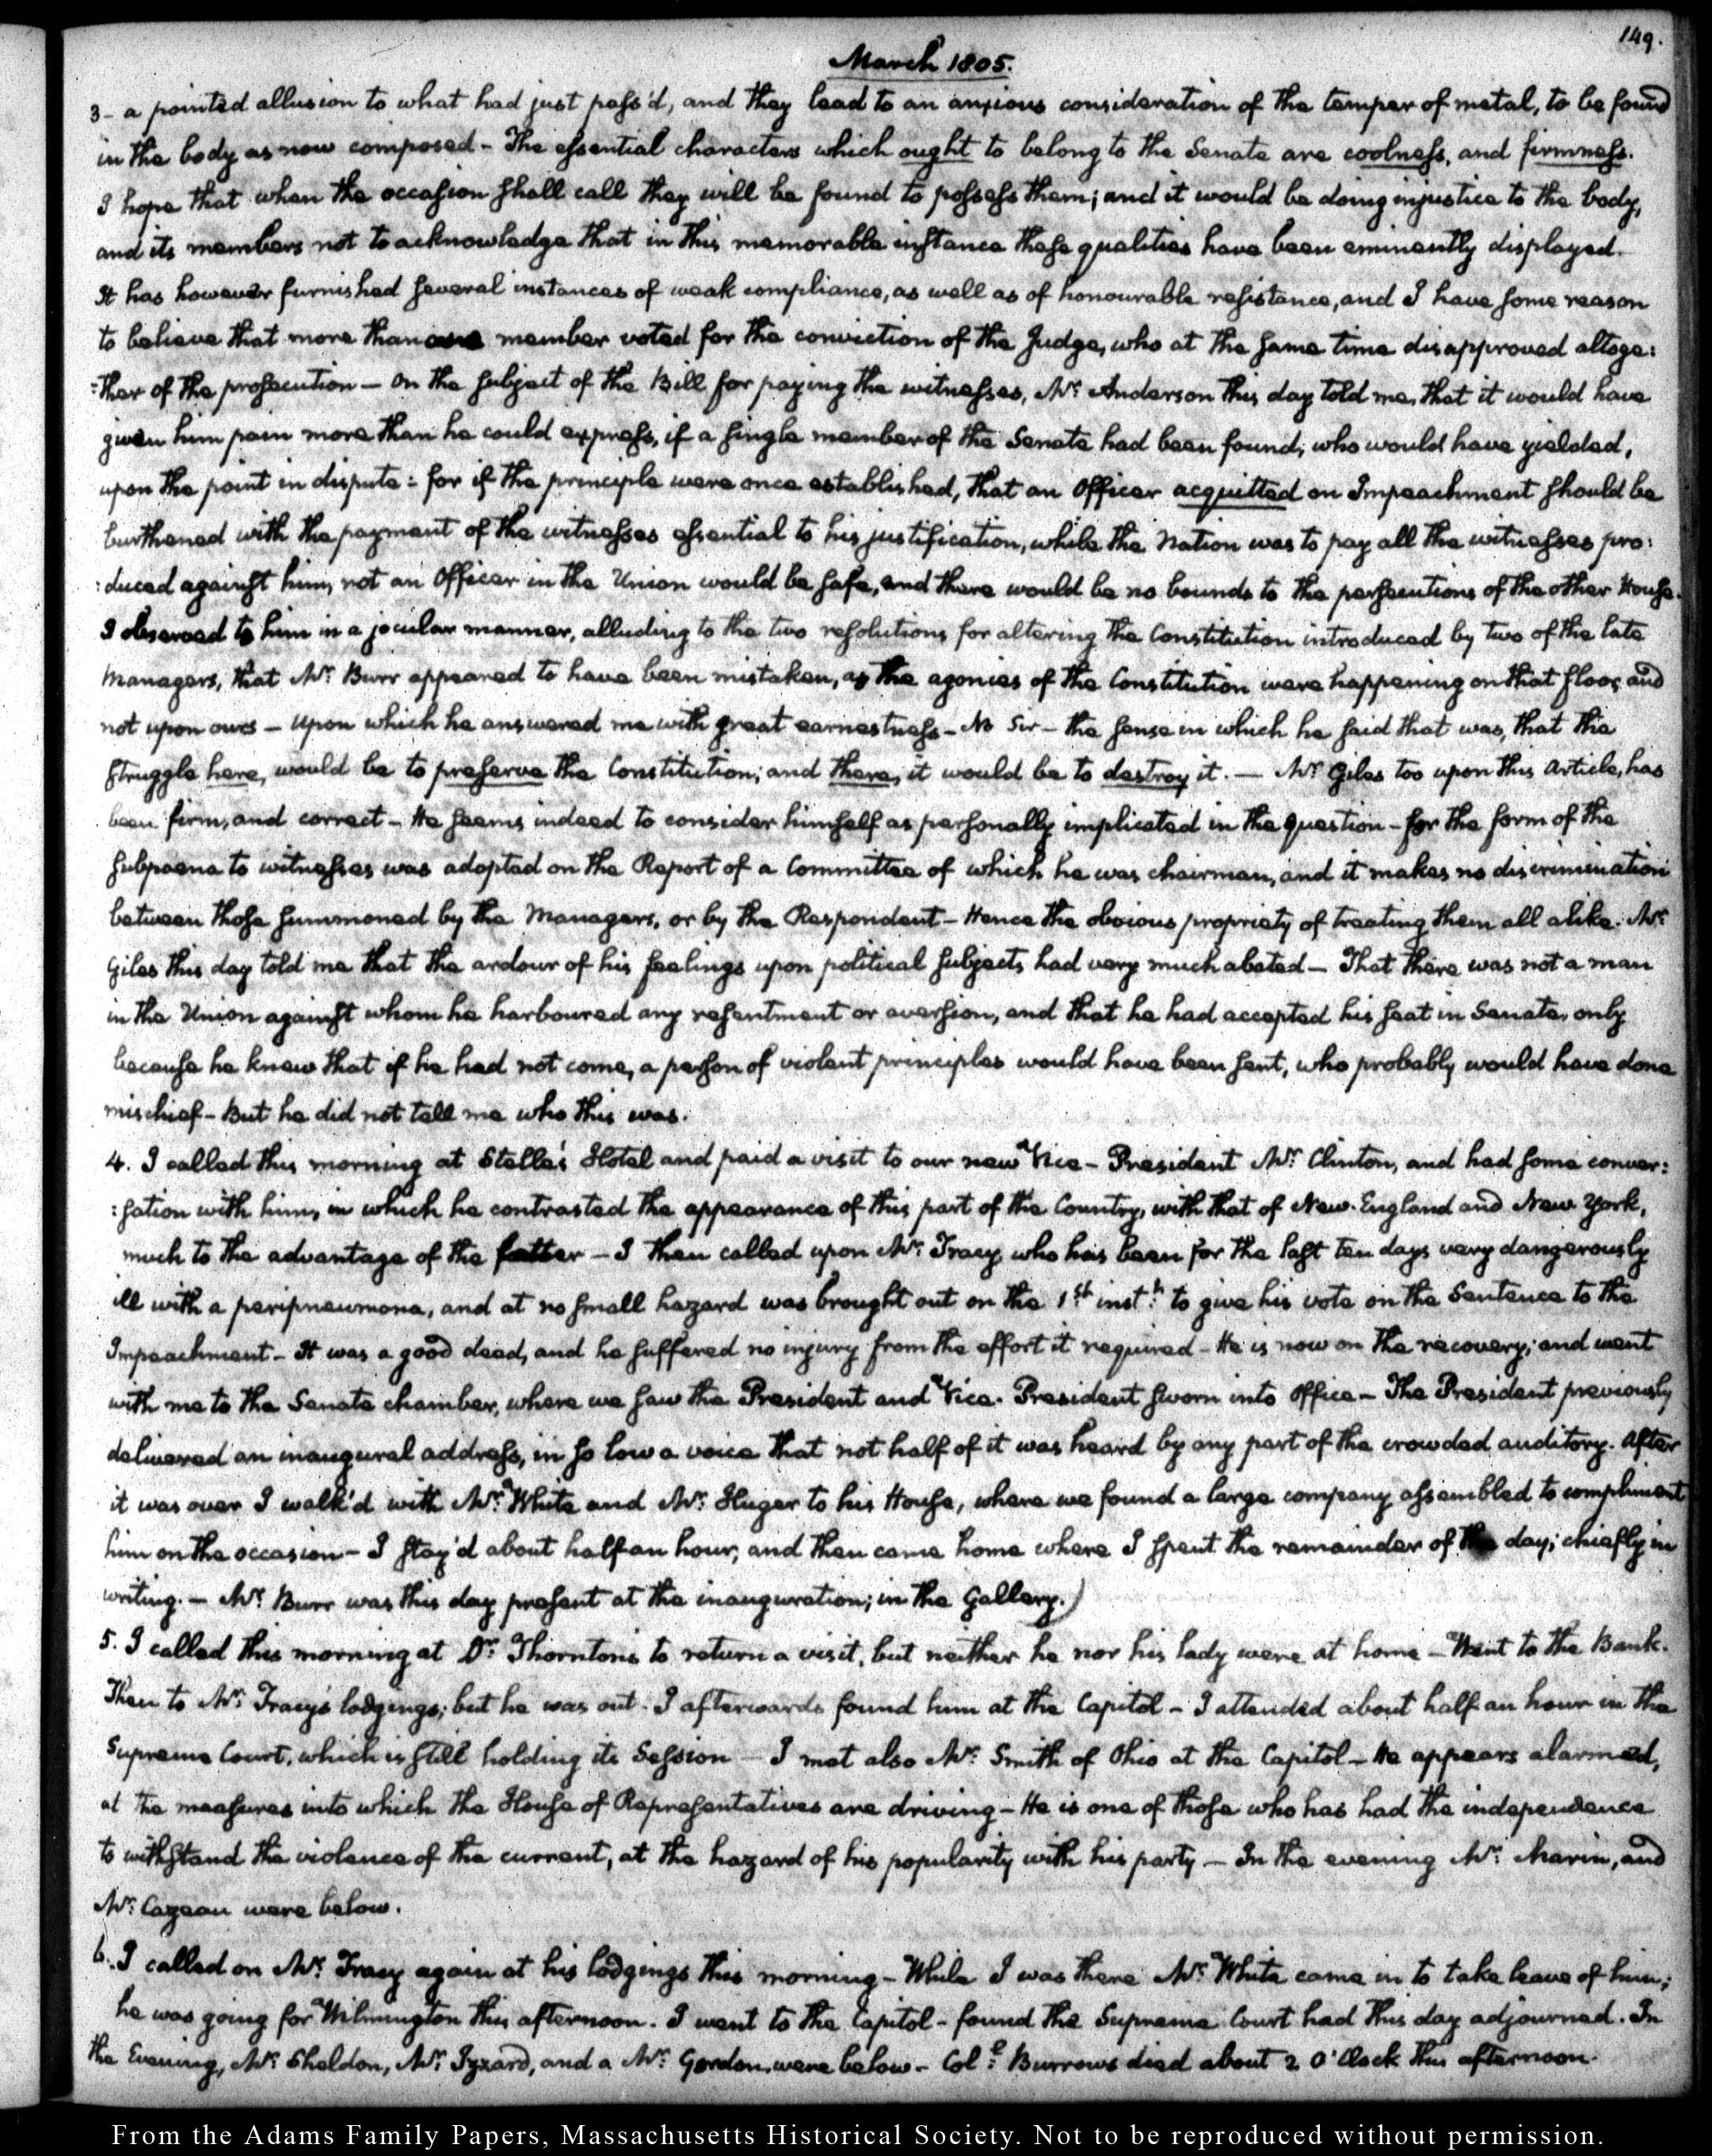 149.
March 1805.
3 - a pointed allusion to what had just pass'd, and they lead to an anxious consideration of the temper of metal, to be found
in the body as now composed - The essential characters which ought to belong to the Senate are coolness, and firmness.
I hope that when the occasion shall call they will be found to possess them; and it would be doing injustice to the body,
and its members not to acknowledge that in this memorable instance these qualities have been eminently displayed.
It has however furnished several instances of weak compliance, as well as of honourable resistance, and I have some reason
to believe that more than one member voted for the conviction of the Judge, who at the same time disapproved altoge:
:ther of the prosecution - On the subject of the Bill for paying the witnesses, Mr. Anderson this day told me, that it would have
given him pain more than he could express, if a single member of the Senate had been found, who would have yielded,
upon the point in dispute: for if the principle were once established, that an Officer acquitted on Impeachment should be
burthened with the payment of the witnesses essential to his justification, while the Nation was to pay all the witnesses pro:
:duced against him, not an Officer in the Union would be safe, and there would be no bounds to the persecutions of the other House.
I observed to him in a jocular manner, alluding to the two resolutions for altering the Constitution introduced by two of the late
Managers, that Mr. Burr appeared to have been mistaken, as the agonies of the Constitution were happening on that floor, and
not upon ours - Upon which he answered me with great earnestness - No Sir - the sense in which he said that was, that the
struggle here, would be to preserve the Constitution; and there, it would be to destroy it. - Mr. Giles too upon this Article, has
been firm, and correct - He seems indeed to consider himself as personally implicated in the question - for the form of the
subpoena to witnesses was adopted on the Report of a Committee of which he was chairman, and it makes no discrimination
between those summoned by the Managers, or by the Respondent - Hence the obvious propriety of treating them all alike. Mr.
Giles this day told me that the ardour of his feelings upon political subjects had very much abated - That there was not a man
in the Union against whom he harboured any resentment or aversion, and that he had accepted his seat in Senate, only
because he knew that if he had not come, a person of violent principles would have been sent, who probably would have done
mischief - But he did not tell me who this was.
4. I called this morning at Stelle's Hotel and paid a visit to our new Vice-President Mr. Clinton, and had some conver:
:sation with him, in which he contrasted the appearance of this part of the Country, with that of New-England and New York,
much to the advantage of the latter - I then called upon Mr. Tracy who has been for the last ten days very dangerously
ill with a peripneumona, and at no small hazard was brought out on the 1st inst: to give his vote on the Sentence to the
Impeachment - It was a good deed, and he suffered no injury from the effort it required - He is now on the recovery; and went
with me to the Senate chamber, where we saw the President and Vice-President sworn into Office - The President previously
delivered an inaugural address, in so low a voice that not half of it was heard by any part of the crowded auditory. After
it was over I walk'd with Mr. White and Mr. Huger to his House, where we found a large company assembled to compliment
him on the occasion - I stay'd about half an hour, and then came home where I spent the remainder of the day; chiefly in
writing. - Mr. Burr was this day present at the inauguration; in the Gallery.)
5. I called this morning at Dr. Thornton's to return a visit, but neither he nor his lady were at home - Went to the Bank.
Then to Mr. Tracy's lodgings; but he was out. I afterwards found him at the Capitol - I attended about half an hour in the
Supreme Court, which is still holding its Session - I met also Mr. Smith of Ohio at the Capitol - He appears alarmed,
at the measures into which the House of Representatives are driving - He is one of those who has had the independence
to withstand the violence of the current, at the hazard of his popularity with his party - In the evening Mr. Marin, and
Mr. Cazeau were below.
6. I called on Mr. Tracy again at his lodgings this morning - While I was there Mr. White came in to take leave of him;
he was going for Wilmington this afternoon. I went to the Capitol - found the Supreme Court had this day adjourned. In
the Evening, Mr. Sheldon, Mr. Iyzard, and a Mr. Gordon, were below - Coll: Burrows died about 2 O'Clock this afternoon.
From the Adams Family Papers, Massachusetts Historical Society. Not to be reproduced without permission.